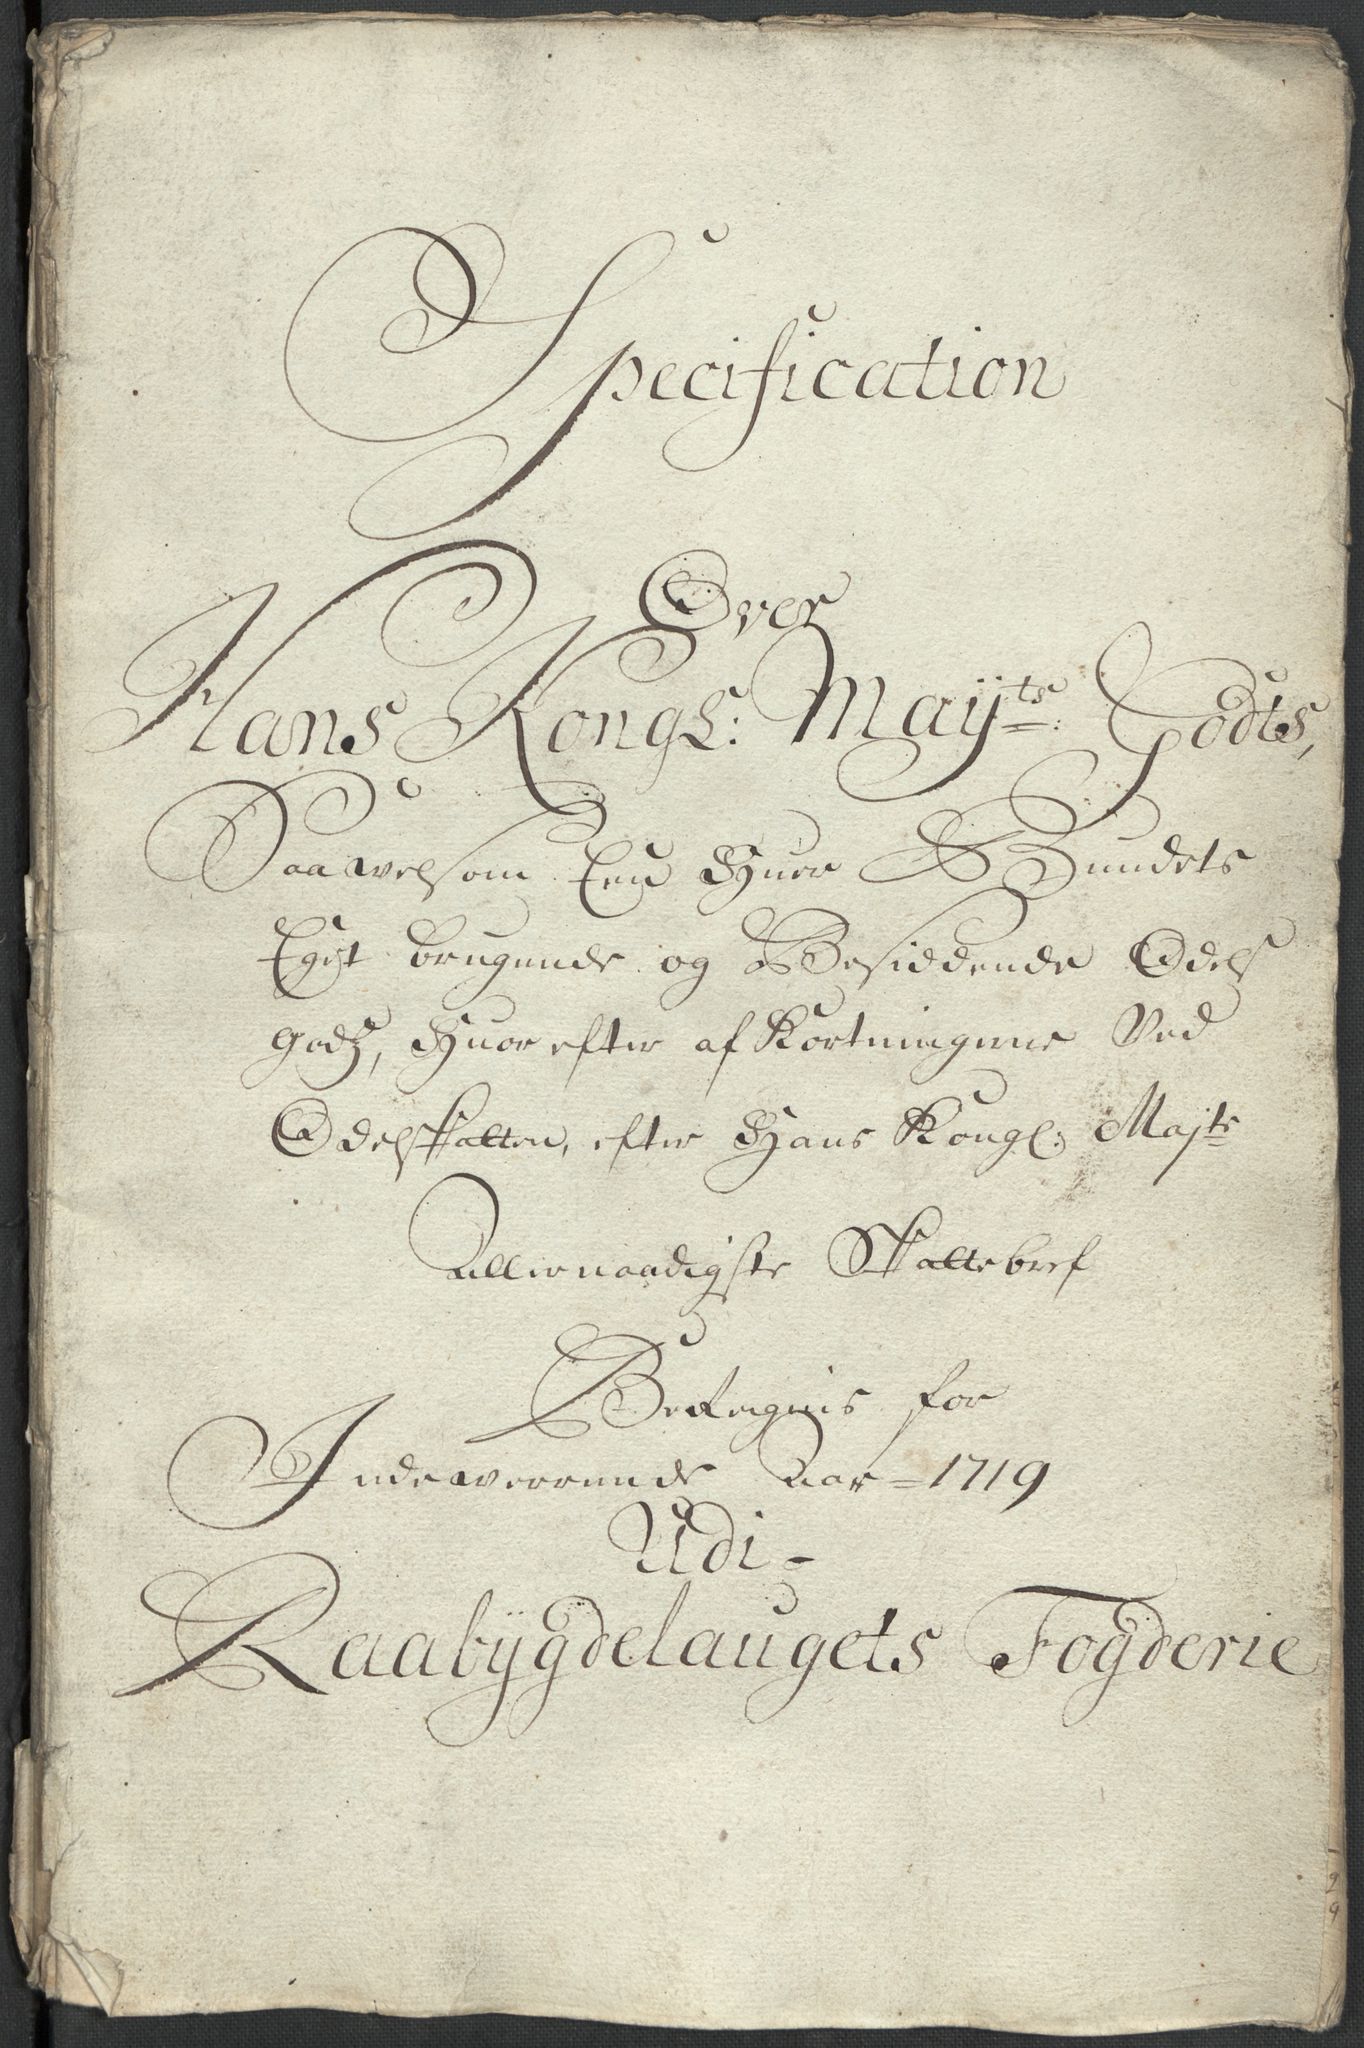 Specification
Over
Hans Kongl: Maÿts: Godts,
Saavelsom Een Huer Bundets
Eget brugende og Besiddende Odels
godz, Huor efter af Kortningerne Ved
Odelskatten, efter Hans Kongl: Majts
Allernaadigste Skattebref
Beregnis for
Indeverrende Aar = 1719
Udi -
Raabÿgdelaugets Fogderie